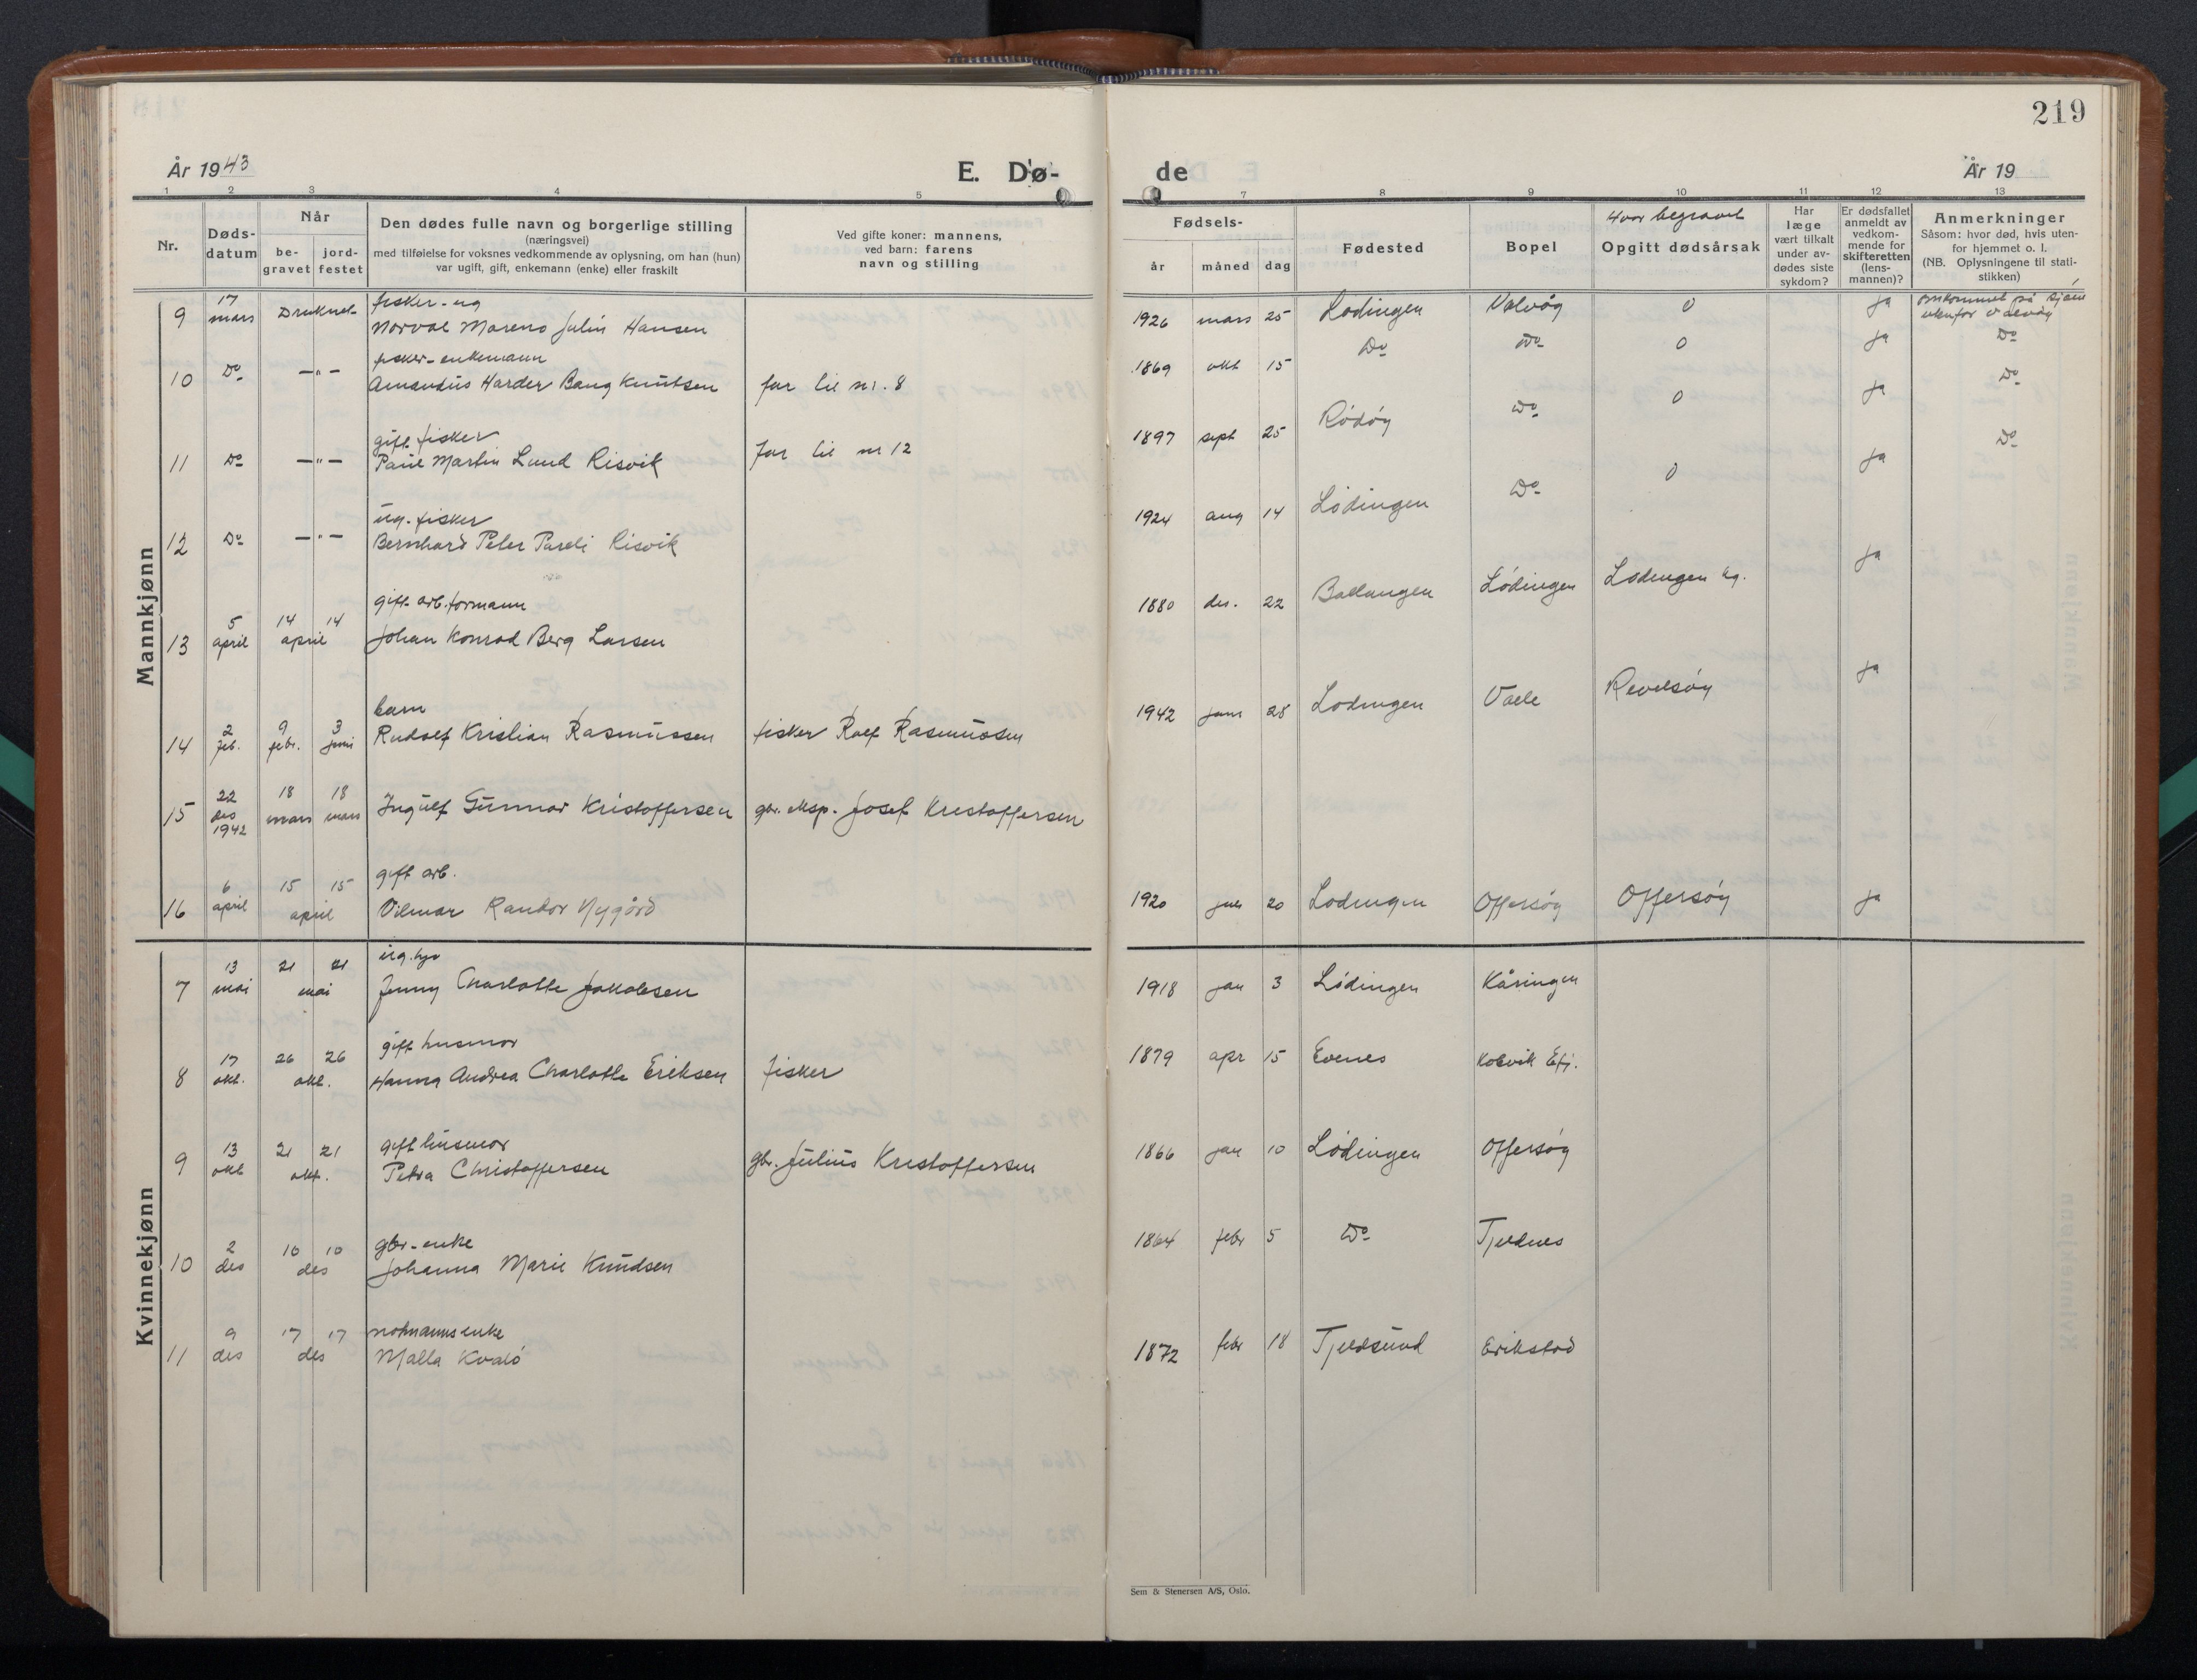 219
År 1943
E. Dø-
de
År 19
1 2 3 4 5 7 8 9 10 11 12 13
Nr.
Døds-
datum
Når
be-
gravet
jord-
festet
Den dødes fulle navn og borgerlige stilling
(næringsvei)
med tilføielse for voksnes vedkommende av oplysning, om han (hun)
var ugift, gift, enkemann (enke) eller fraskilt
Ved gifte koner: mannens,
ved barn: farens
navn og stilling
Fødsels-
år måned dag
Fødested
Bopel
Hvor begravet
Opgitt dødsårsak
Har
læge
vært tilkalt
under av-
dødes siste
sykdom?
Er dødsfallet
anmeldt av
vedkom-
mende for
skifteretten
(lens-
mannen)?
Anmerkninger
Såsom: hvor død, hvis uten-
for hjemmet o. l.
(NB. Oplysningene til stati-
stikken)
Mannkjønn
9 17 mars Druknet fisker-ug
Norval Mareno Julin Hansen
1926 mars 25 Lødingen Valvåg 0 ja omkommet på sjøen
utenfor Valvåg
10 Do —"— fisker-enkemann
Amandus Harder Bang Knutsen far til nr. 8
1869 okt 15 Do Do 0 ja Do
11 Do —"— gift fisker
Paul Martin Lund Risvik far til nr 12
1897 sept 25 Rødøy Do 0 ja Do
12 Do —"— ug. fisker
Bernhard Peter Pareli Risvik
1924 aug 14 Lødingen Do 0 ja Do
13 5 april 14 14 april gift arb.formann
Johan Konrad Berg Larsen
1880 des. 22 Ballangen Lødingen Lødingen kg. ja
14 2 feb. 9 febr. 3 juni barn
Rudolf Kristian Rasmussen fisker Rolf Rasmussen
1942 jan 28 Lødingen Valle Revelsøy ja
15 22 des 1942 18 mars 18 mars Ingulf Gunnar Kristoffersen gbr. eksp. Josef Kristoffersen
16 6 april 15 15 april gift arb.
Vilmar Randor Nygård
1920 juli 20 Lødingen Offersøy Offersøy ja
Kvinnekjønn
7 13 mai 21 21 mai ug. hjv
Jenny Charlotte Jakobsen
1918 jan 3 Lødingen Kåringen
8 17 okt. 26 26 okt. gift husmor
Hanna Andrea Charlotte Eriksen fisker
1879 apr 15 Evenes Kobvik Efj.
9 13 okt 21 21 okt. gift husmor
Petra Christoffersen gbr. Julius Kristoffersen
1866 jan 10 Lødingen Offersøy
10 2 des 10 10 des gbr-enke
Johanna Marie Knudsen
1864 febr 5 Do Tjeldnes
11 9 des 17 17 des notmannsenke
Malla Kvalø
1872 febr 18 Tjeldsund Erikstad
Sem & Stenersen A/S, Oslo.